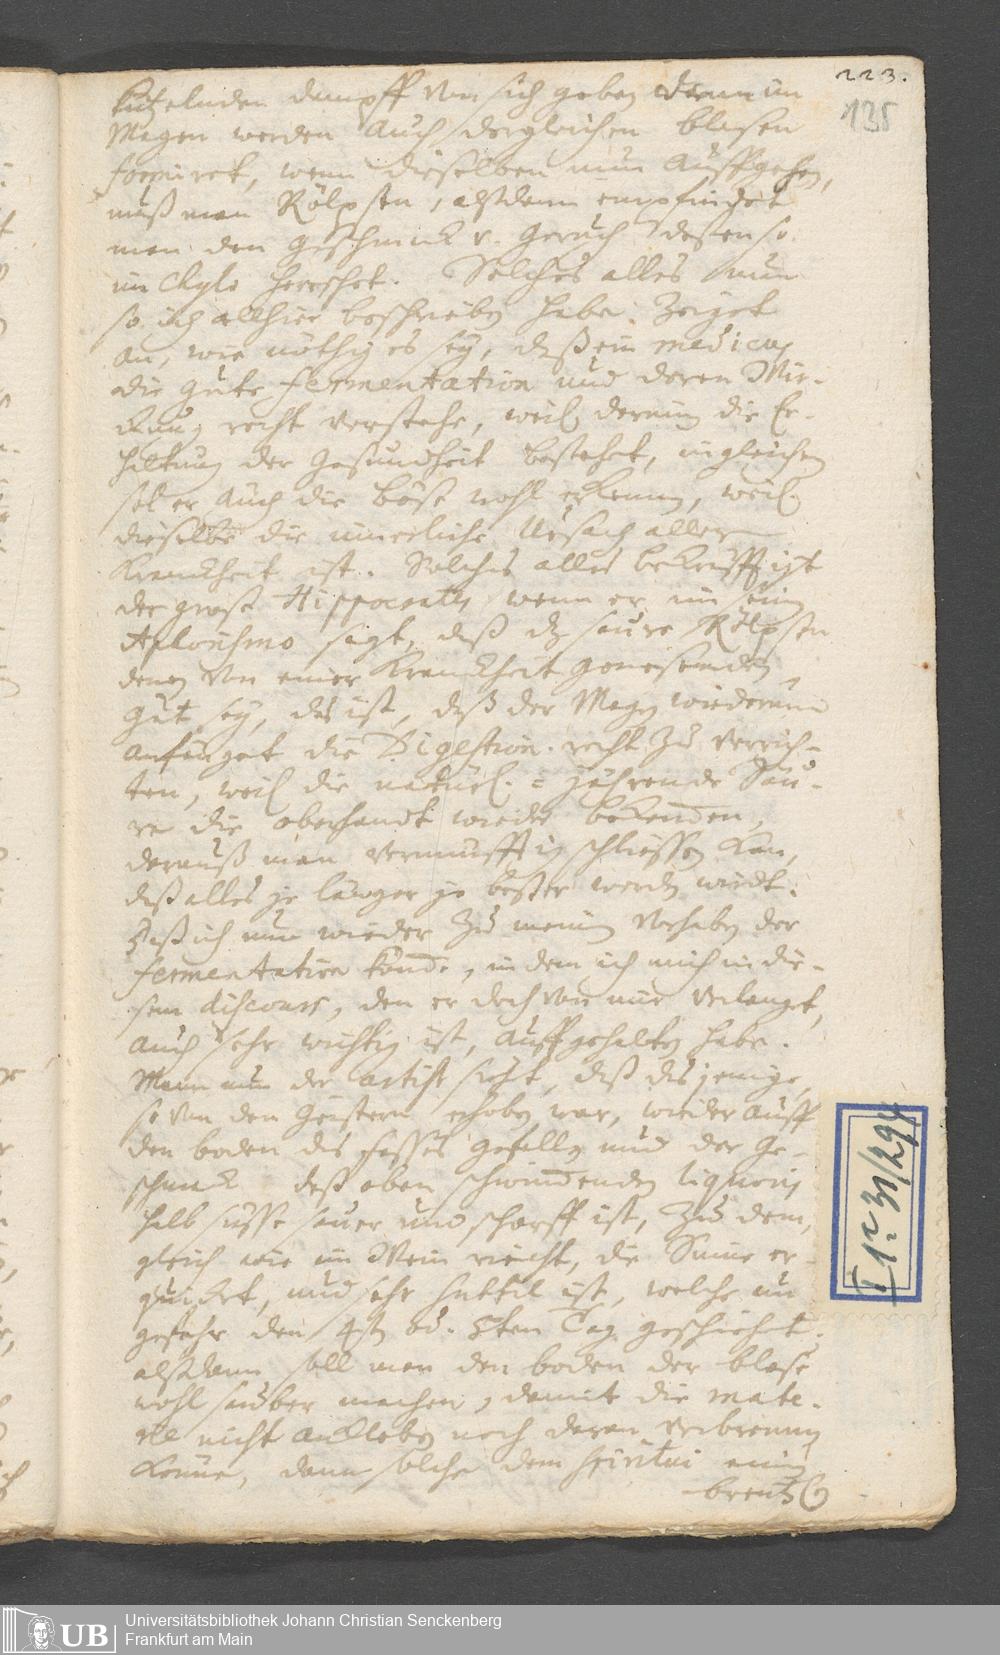 223.
135
kützelnden dampff von sich geben dann im
Magen werden auch dergleichen blasen
formiret, wenn dieselben nun auffgehen,
muß man Rölpsen, alßdann empfindet
man den Geschmack v. Geruch deßen so
im Chylo herrschet. Solches alles nun
so ich allhier beschrieben habe. Zeiget
an, wie nöthig es sey, daß ein medicus
die gute fermentation und deren Wir-
ckung recht verstehe, weil darinn die Er-
haltung der Gesundheit bestehet, ingleichen
sol er auch die böse wohl erkennen, weil
dieselbe die innerliche Ursach aller
Kranckheit ist. Solches alles bekräfftigt
der große Hippocrates wenn er im seim
Aphorismo sagt, daß dz saure Rölpsen
denen von einer Kranckheit genesenden
gut sey, das ist, daß der Magen wiederumb
anfanget die Digestion. recht zu verrich-
ten, weil die natürl. = jährende Säu-
re die oberhandt wieder bekommen,
darauß man vernünfftig schliessen kan,
daß alles je länger je besser werden wirdt.
Daß ich nun wieder zu meinem Vorhaben der
fermentation komme, in dem ich mich in die-
sem discours, den er doch von mir verlanget,
auch sehr wichtig ist, auffgehalten habe.
Wann nun der artist sieht, daß dasjenige
so von den Geistern erhoben war, wieder auff
den boden des fasses gefallen und der Ge-
schmack deß oben schwimmenden liquoris
halb süsse sauer und scharff ist, zu dem,
gleich wie im Wein riecht, die Sinne er-
quicket, und sehr subtil ist, welche un
gefehr den 4st. od. 5ten Tag geschiehet.
alßdann soll man den boden der blase
wohl sauber machen, damit die mate-
rie nicht ankleben noch daran verbrennen
könne, dann solche dem spiritui einen
brentz
I 12 31/294
UB
Universitätsbibliothek Johann Christian Senckenberg
Frankfurt am Main